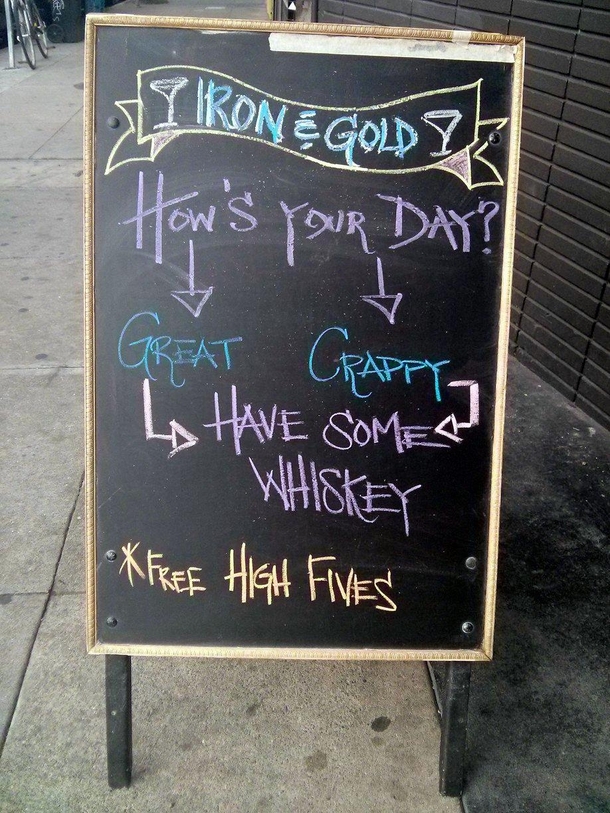 IRON & GOLD
HOW'S YOUR DAY?
GREAT CRAPPY
HAVE SOME
WHISKEY
*FREE HIGH FIVES